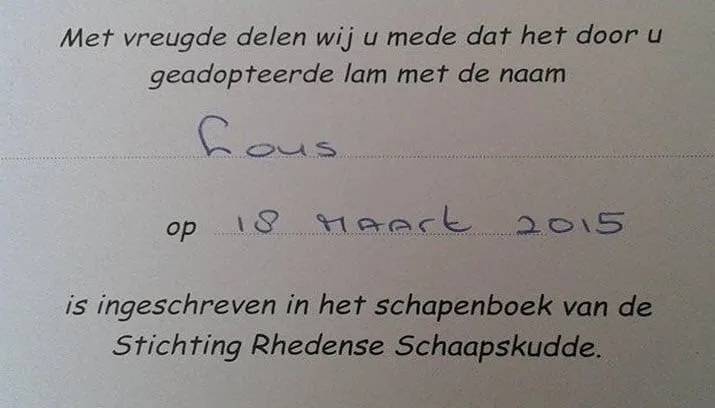 Met vreugde delen wij u mede dat het door u
geadopteerde lam met de naam
Lous
op 18 maart 2015
is ingeschreven in het schapenboek van de
Stichting Rhedense Schaapskudde.